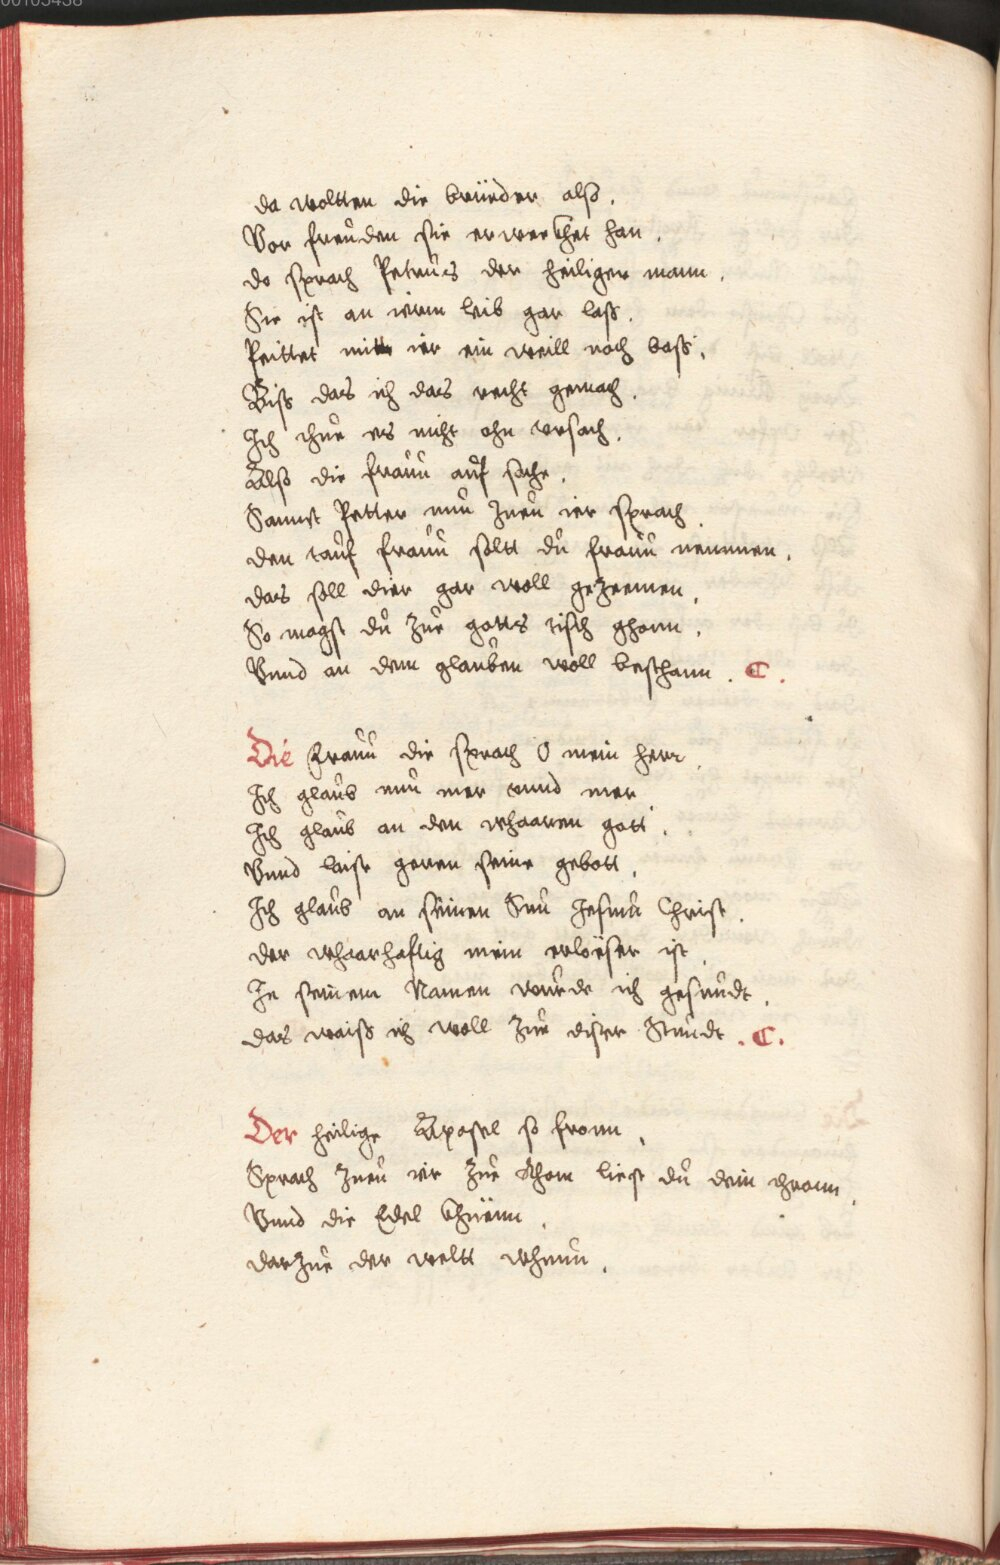 da woltten die brüeder alß.
Vor freuden sie erwerkhet han.
do sprach Petrus der heiliger mann.
Sie ist an ierm leib gar laß.
Peittet mitt ier ein weill noch baß.
Biß das ich das recht gemach.
Ich thue es nicht ohn vrsach.
Alß die frauu auf sache.
Sannct Petter nun zueu ier sprach.
den tauf frauu soltt du frauu nemmen.
das soll dier gar woll gezeemen.
So magst du zue gotts tisch ghonn.
Vnnd an dem glauben woll besthann. C.
Die Frauu die sprach O mein herr.
Ich glaub nun mer vnnd mer.
Ich glaub an den whaaren gott.
Vnnd laist geren seine gebott.
Ich glaub an seinen Sun Jesum Christ.
der whaarhafftig mein erloeser ist.
In seinem Namen wurde ich gesundt.
das waiß ich woll zue diser Stundt. C.
Der heilige Aposel so fromm.
Sprach zueu ier zue Rhom liest du dein thronn.
Vnnd die Edel khüenn.
darzue der weltt whunn.